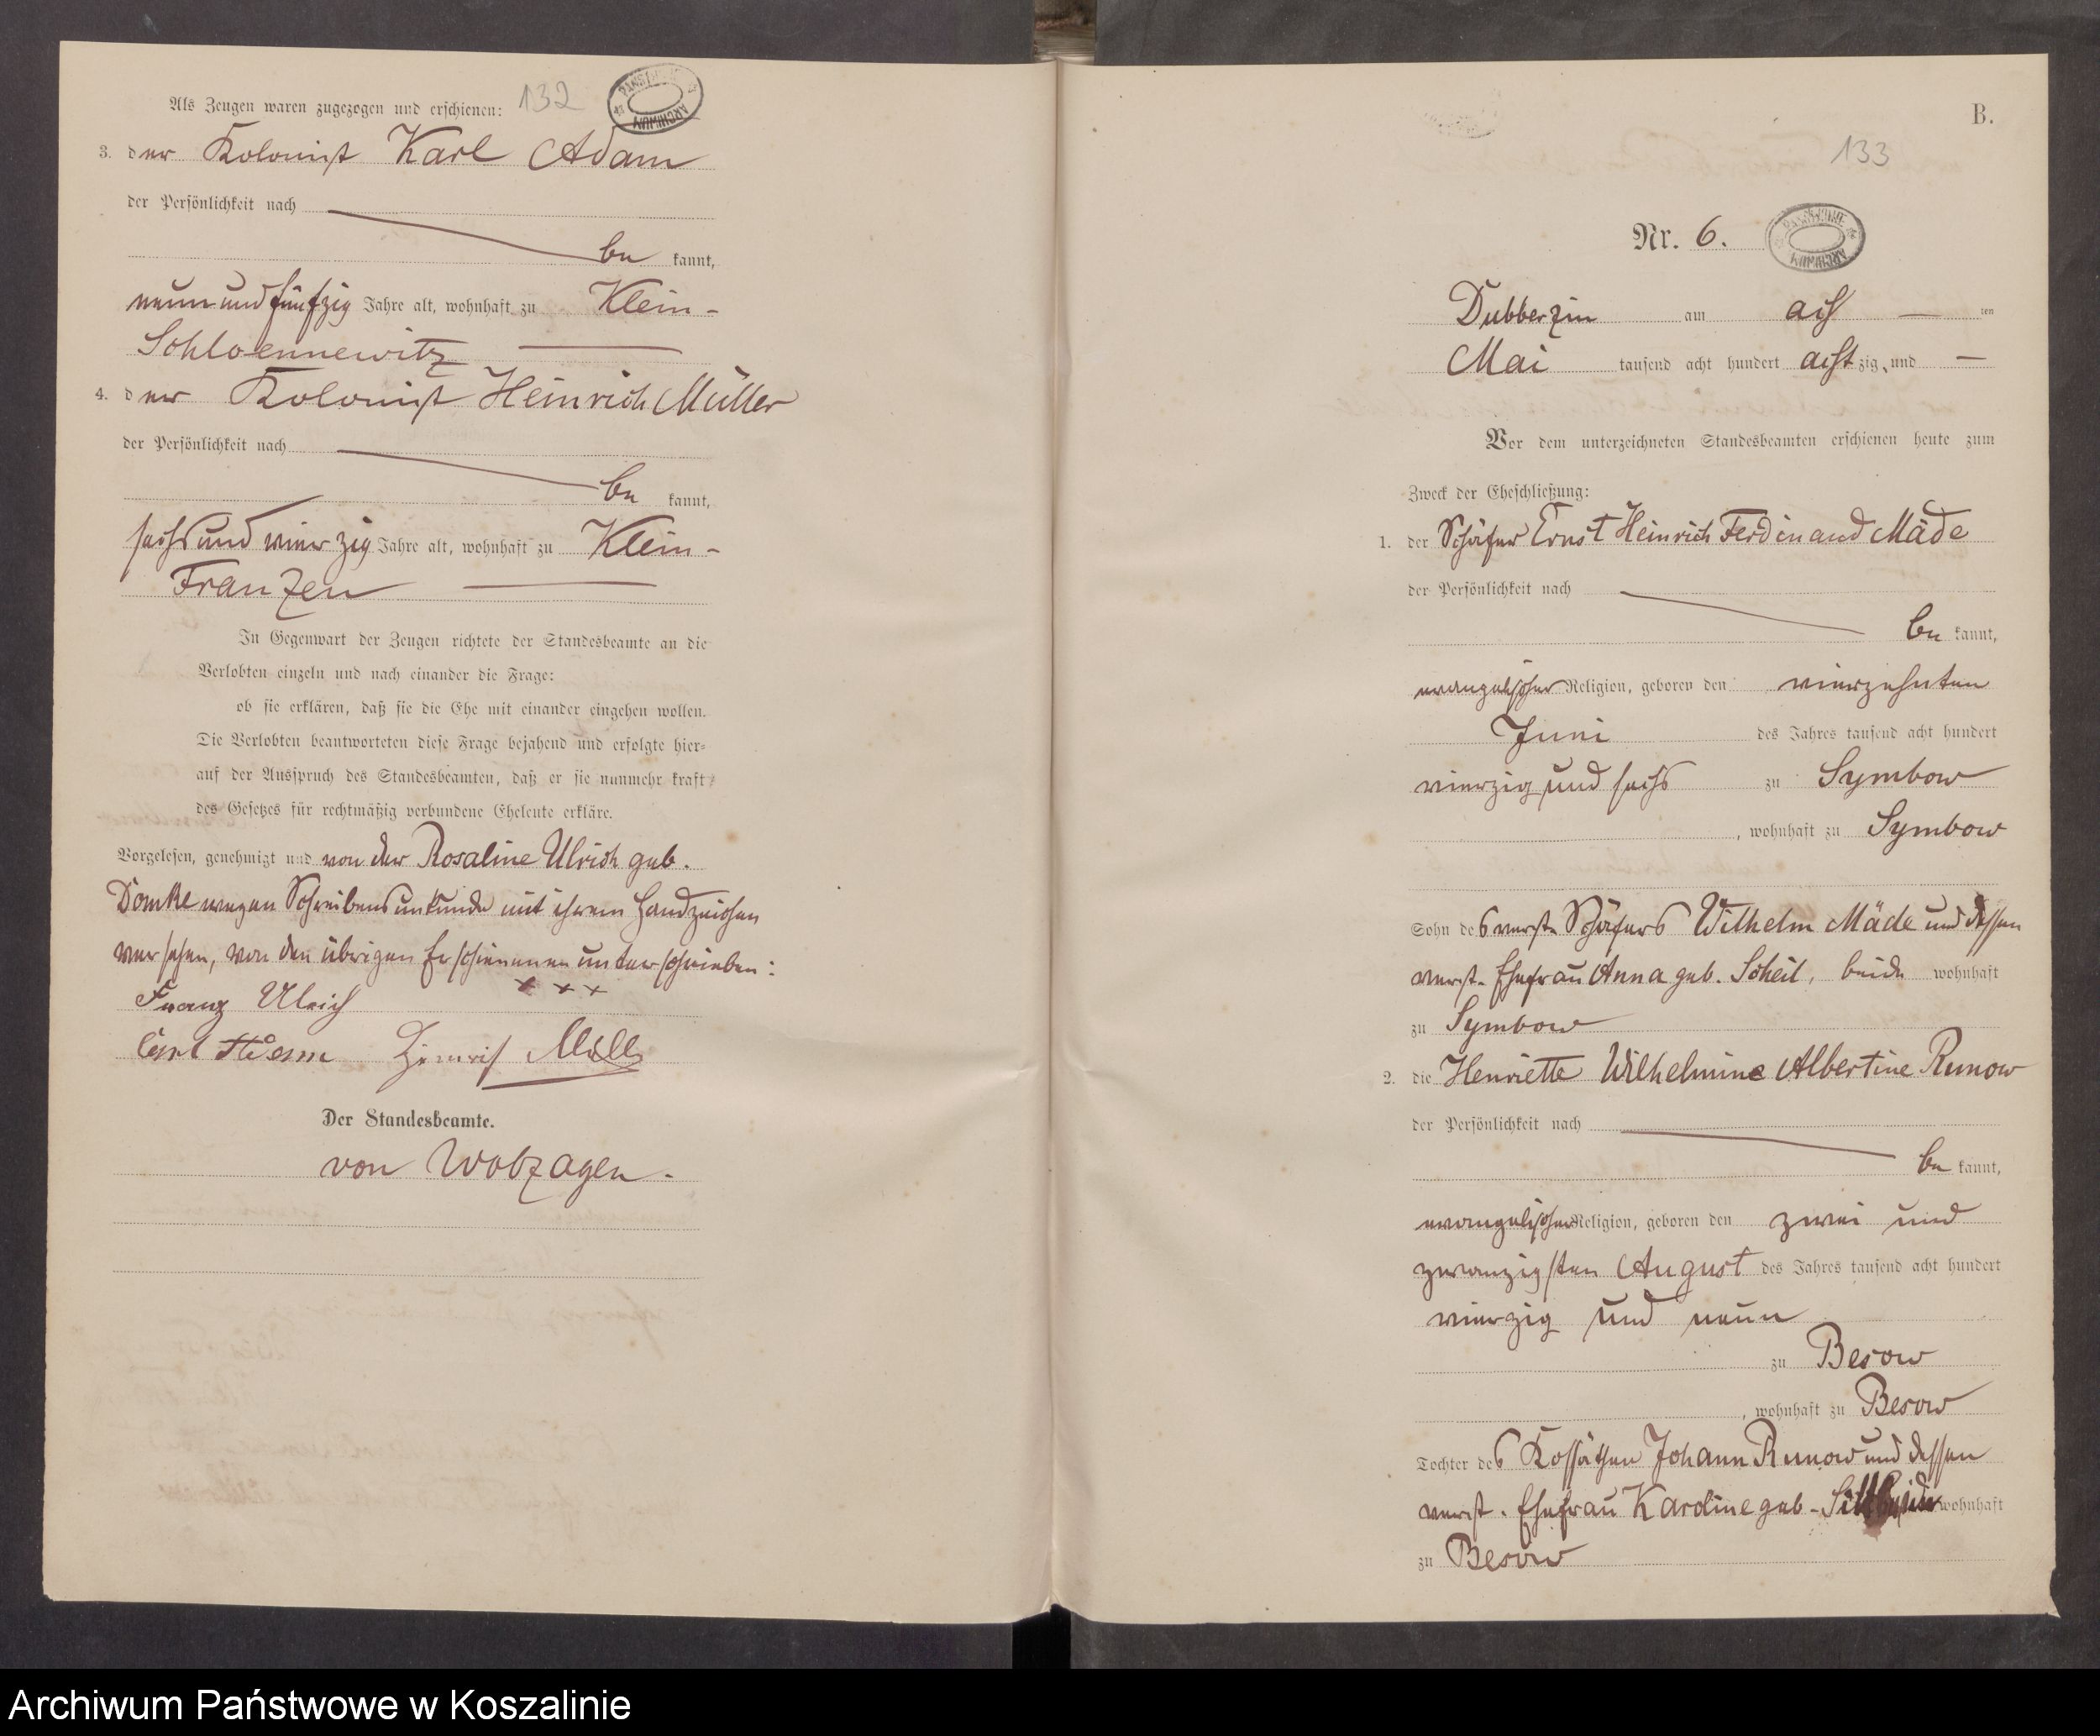 132
Als Zeugen waren zugezogen und erschienen:
3. der Kolonist Karl Adam
der Persönlichkeit nach
be kannt,
neun und fünfzig Jahre alt, wohnhaft zu Klein-
Schloennewitz
4. der Kolonist Heinrich Müller
der Persönlichkeit nach
be kannt,
sechs und vierzig Jahre alt, wohnhaft zu Klein-
Franzen
In Gegenwart der Zeugen richtete der Standesbeamte an die
Verlobten einzeln und nach einander die Frage:
ob sie erklären, daß sie die Ehe mit einander eingehen wollen.
Die Verlobten beantworteten diese Frage bejahend und erfolgte hier-
auf der Ausspruch des Standesbeamten, daß er sie nunmehr kraft
des Gesetzes für rechtmäßig verbundene Eheleute erkläre.
Vorgelesen, genehmigt und von der Rosaline Ulrich geb.
Domke wegen Schreibensunkunde mit ihrem Handzeichen
versehen, von den übrigen Erschienenen unterschrieben:
x x x
Franz Ulrich
Carl Heinrich
Der Standesbeamte.
von Wobzagen.
B.
133
Nr. 6.
Dubberzin am acht ten
Mai tausend acht hundert achtzig und
Vor dem unterzeichneten Standesbeamten erschienen heute zum
Zweck der Eheschließung:
1. der Schäfer Ernst Heinrich Ferdinand Mäde
der Persönlichkeit nach
be kannt,
evangelischer Religion, geboren den vierzehnten
Juni des Jahres tausend acht hundert
vierzig und sechs zu Symbow
, wohnhaft zu Symbow
Sohn des verst. Schäfers Wilhelm Mäde und dessen
verst. Ehefrau Anna geb. Scheil, beide wohnhaft
zu Symbow
2. die Henriette Wilhelmine Albertine Runow
der Persönlichkeit nach
be kannt,
evangelischer Religion, geboren den zwei und
zwanzigsten August des Jahres tausend acht hundert
vierzig und neun
zu Besow
, wohnhaft zu Besow
Tochter des Kossäthen Johann Runow und dessen
verst. Ehefrau Karoline geb. wohnhaft
zu Besow
Archiwum Państwowe w Koszalinie